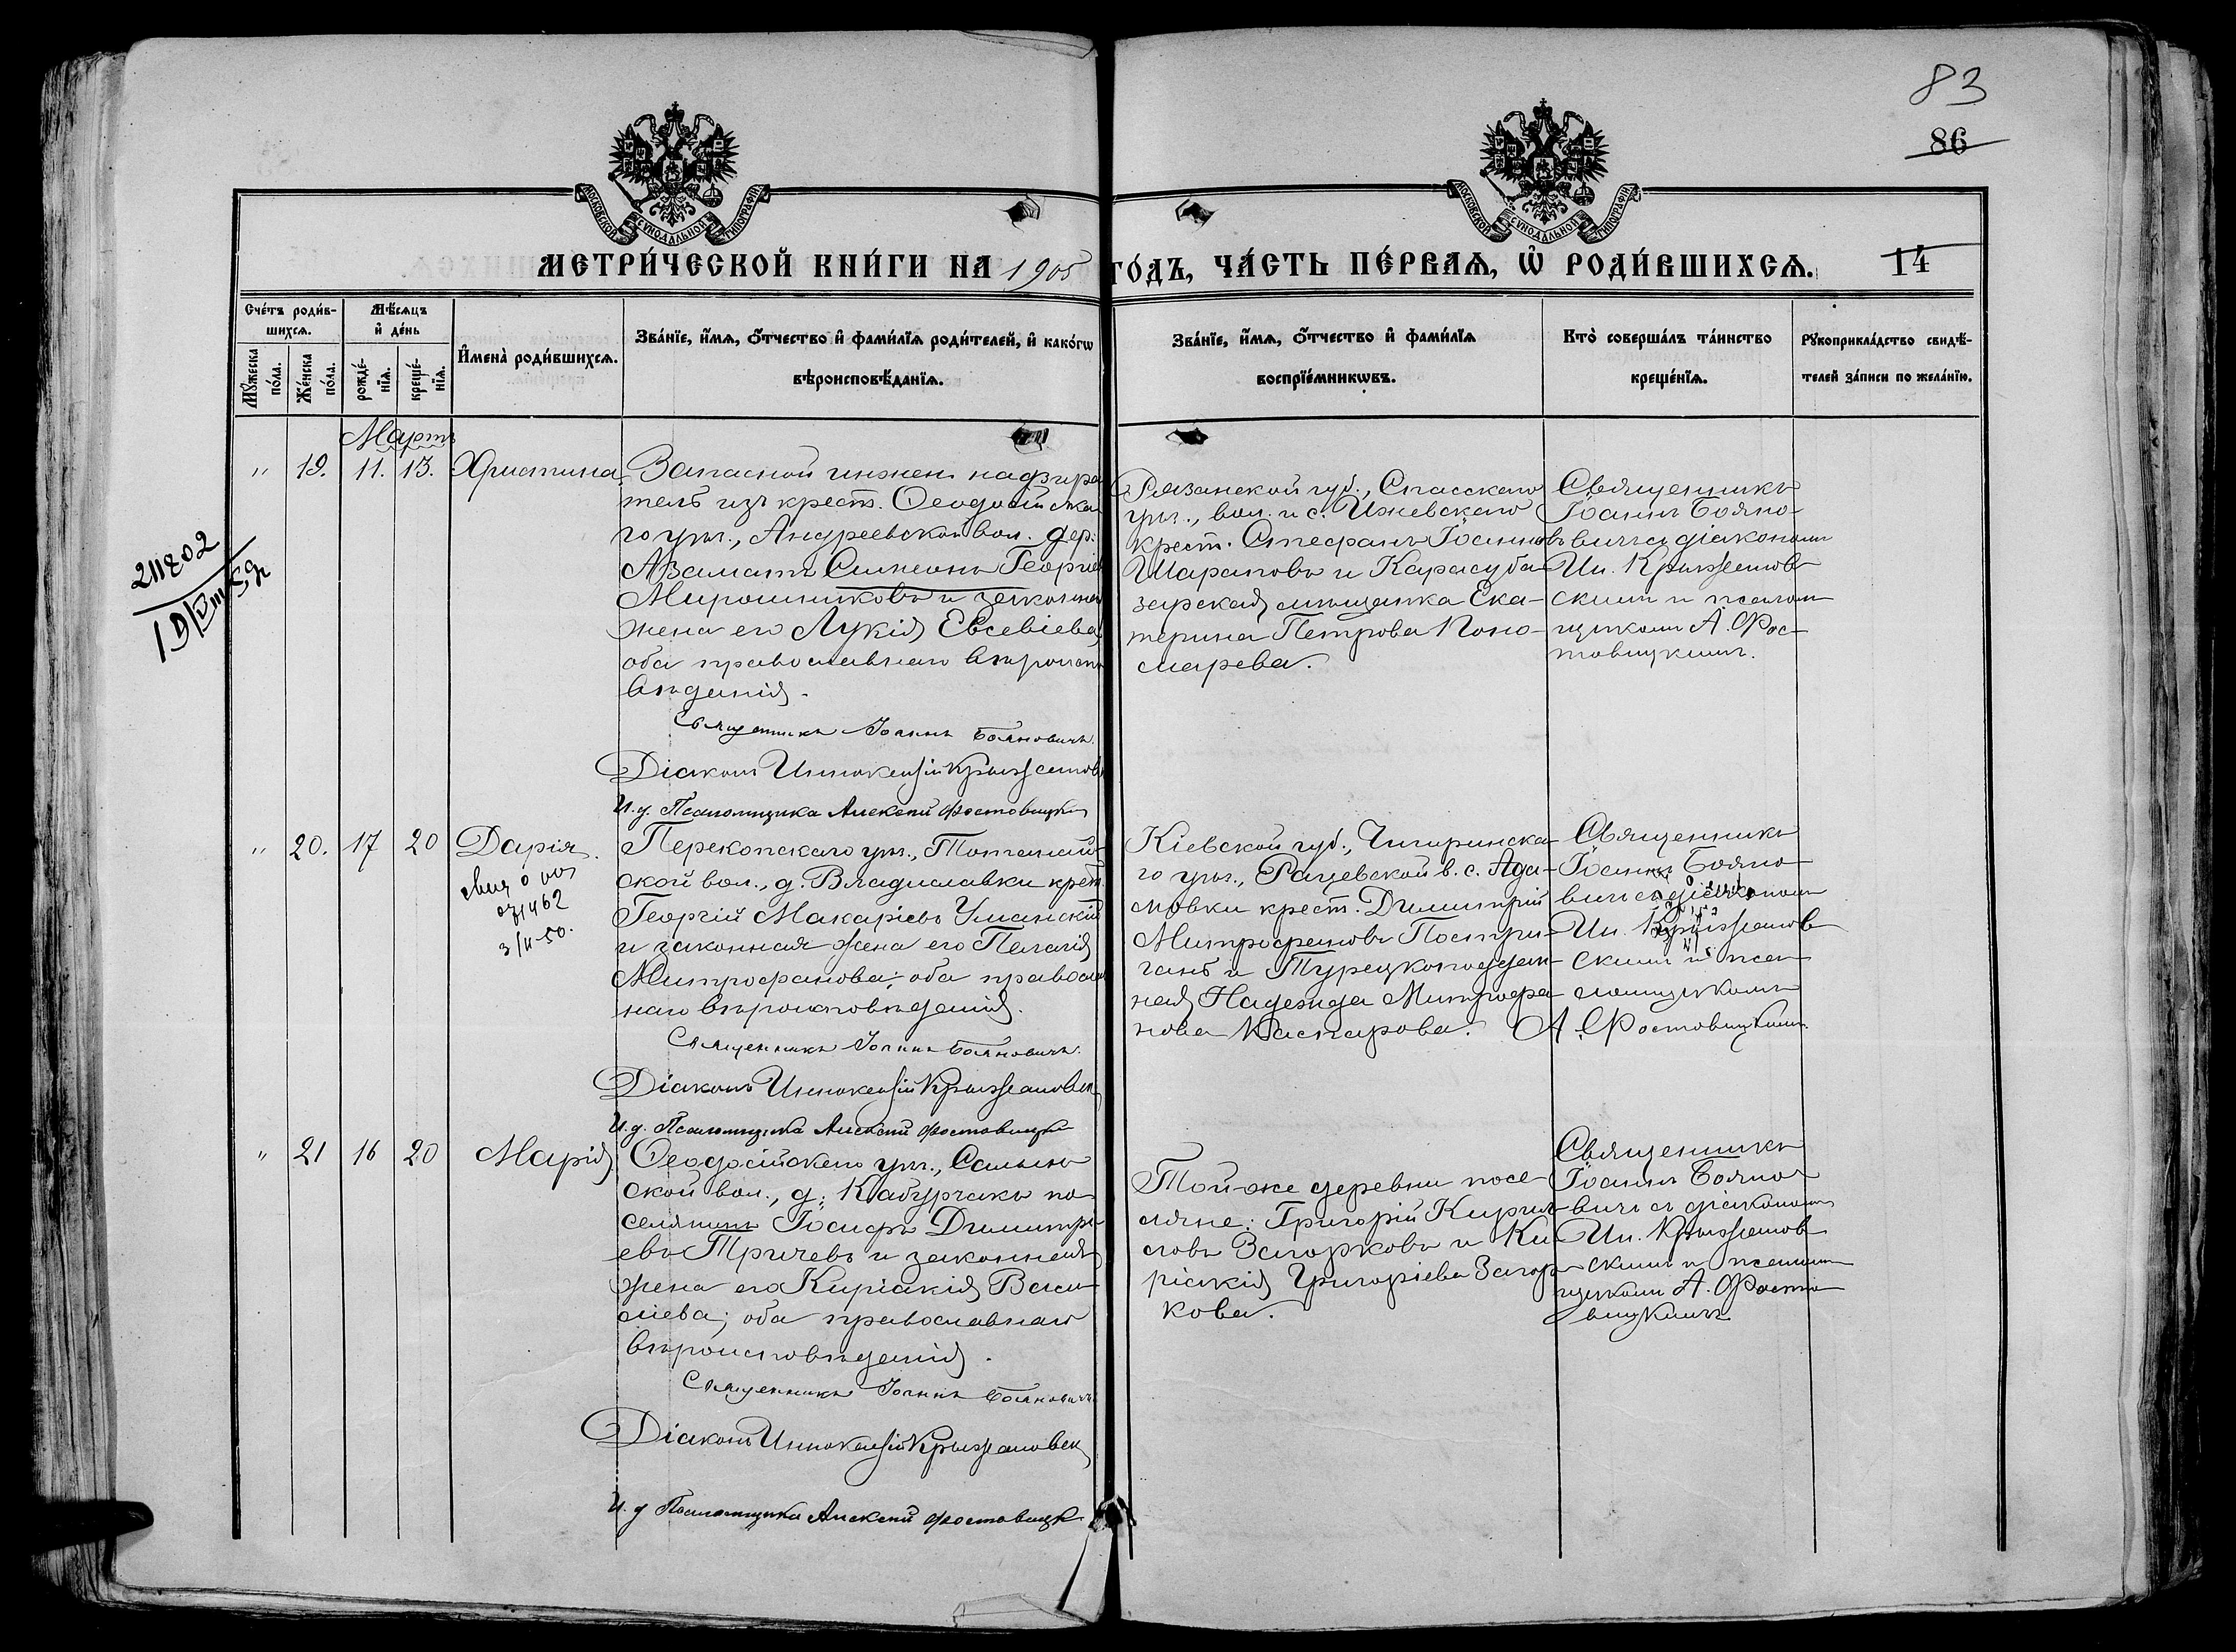 83
86
МОСКОВСКОЙ СѴНОДАЛЬНОЙ ТИПОГРАФІИ
МОСКОВСКОЙ СѴНОДАЛЬНОЙ ТИПОГРАФІИ
МЕТРИ́ЧЕСКОЙ КНИ́ГИ НА 1905 ГО́ДЪ, ЧА́СТЬ ПЕ́РВАѦ, Ѡ҆ РОДИ́ВШИХСѦ.
14
Сче́тъ роди́в-
шихсѧ.
Мѣ́сѧцъ
и҆ де́нь
Мꙋ́жеска
по́ла.
Же́нска
по́ла.
рожде́-
нїѧ.
креще́-
нїѧ.
И҆мена̀ роди́вшихсѧ.
Зва́нїе, и҆́мѧ, ѻ҆́тчество и҆ фами́лїѧ роди́телей, и҆ како́гѡ
вѣроисповѣ́данїѧ.
Зва́нїе, и҆́мѧ, ѻ҆́тчество и҆ фами́лїѧ
воспрїе́мникѡвъ.
Кто̀ соверша́лъ та́инство
креще́нїѧ.
Рꙋкоприкла́дство свидѣ́-
телей за́писи по жела́нїю.
Мартъ
" 19. 11. 13. Христина
Запасной инжен. надзира
тель изъ крест. Ѳеодосійска
го уѣз., Андреевской вол. дер.
Азаматъ Симеонъ Георгіев
Мирошниковъ и законная
жена его Лукія Евсевіева
оба православнаго вѣроиспо
вѣданія.
Священникъ Іоаннъ Бояновичъ.
Діаконъ Иннокентій Крыжановс
И.д. Псаломщика Алексій Ростовицкі
Рязанской губ., Спасскаго
уѣз., вол. и с. Ижевскаго
крест. Стефанъ Іоанновъ
Шараповъ и Карасуба-
зарская мѣщанка Ека-
терина Петрова Поно-
марева.
Священникъ
Іоаннъ Бояно-
вичъ съ діакономъ
Ин. Крыжанов-
скимъ и псалом
щикомъ А. Рос-
товицкимъ.
211802
" 20. 17 20 Дарія.
071462
3/II-50.
Перекопскаго уѣз., Тотанай-
ской вол., д. Владиславки крест.
Георгій Макаріевъ Уманскій
и законная жена его Пелагія
Митрофанова; оба правосла
наго вѣроисповѣданія.
Священникъ Іоаннъ Бояновичъ.
Діаконъ Иннокентій Крыжановск
И.д. Псаломщика Алексій Ростовицкі
Кіевской губ., Чигиринска-
го уѣз., Рацевской в. с. Ада-
мовки крест. Димитрій
Митрофановъ Постри-
ганъ и Турецкоподдан-
ная Надежда Митрофа
нова Каспарова.
Священникъ
Іоаннъ Бояно-
вичъ съ діакономъ
Ин. Крыжанов
скимъ и пса-
ломщикомъ
А. Ростовицкимъ.
" 21 16 20 Марія
Ѳеодосійскаго уѣз., Салын
ской вол., д. Кабурчакъ по
селянинъ Іосифъ Димитрі-
евъ Тричевъ и законная
жена его Киріакія Васи-
ліева; оба православнаго
вѣроисповѣданія.
Священникъ Іоаннъ Бояновичъ
Діаконъ Иннокентій Крыжановск
И.д Псаломщика Алексій Ростовицк
Той-же деревни посе-
ляне: Григорій Кирил-
ловъ Загорковъ и Ки
ріакія Григоріева Загор-
кова.
Священникъ
Іоаннъ Бояно-
вичъ съ діакономъ
Ин. Крыжанов
скимъ и псалом
щикомъ А. Росто
вицкимъ